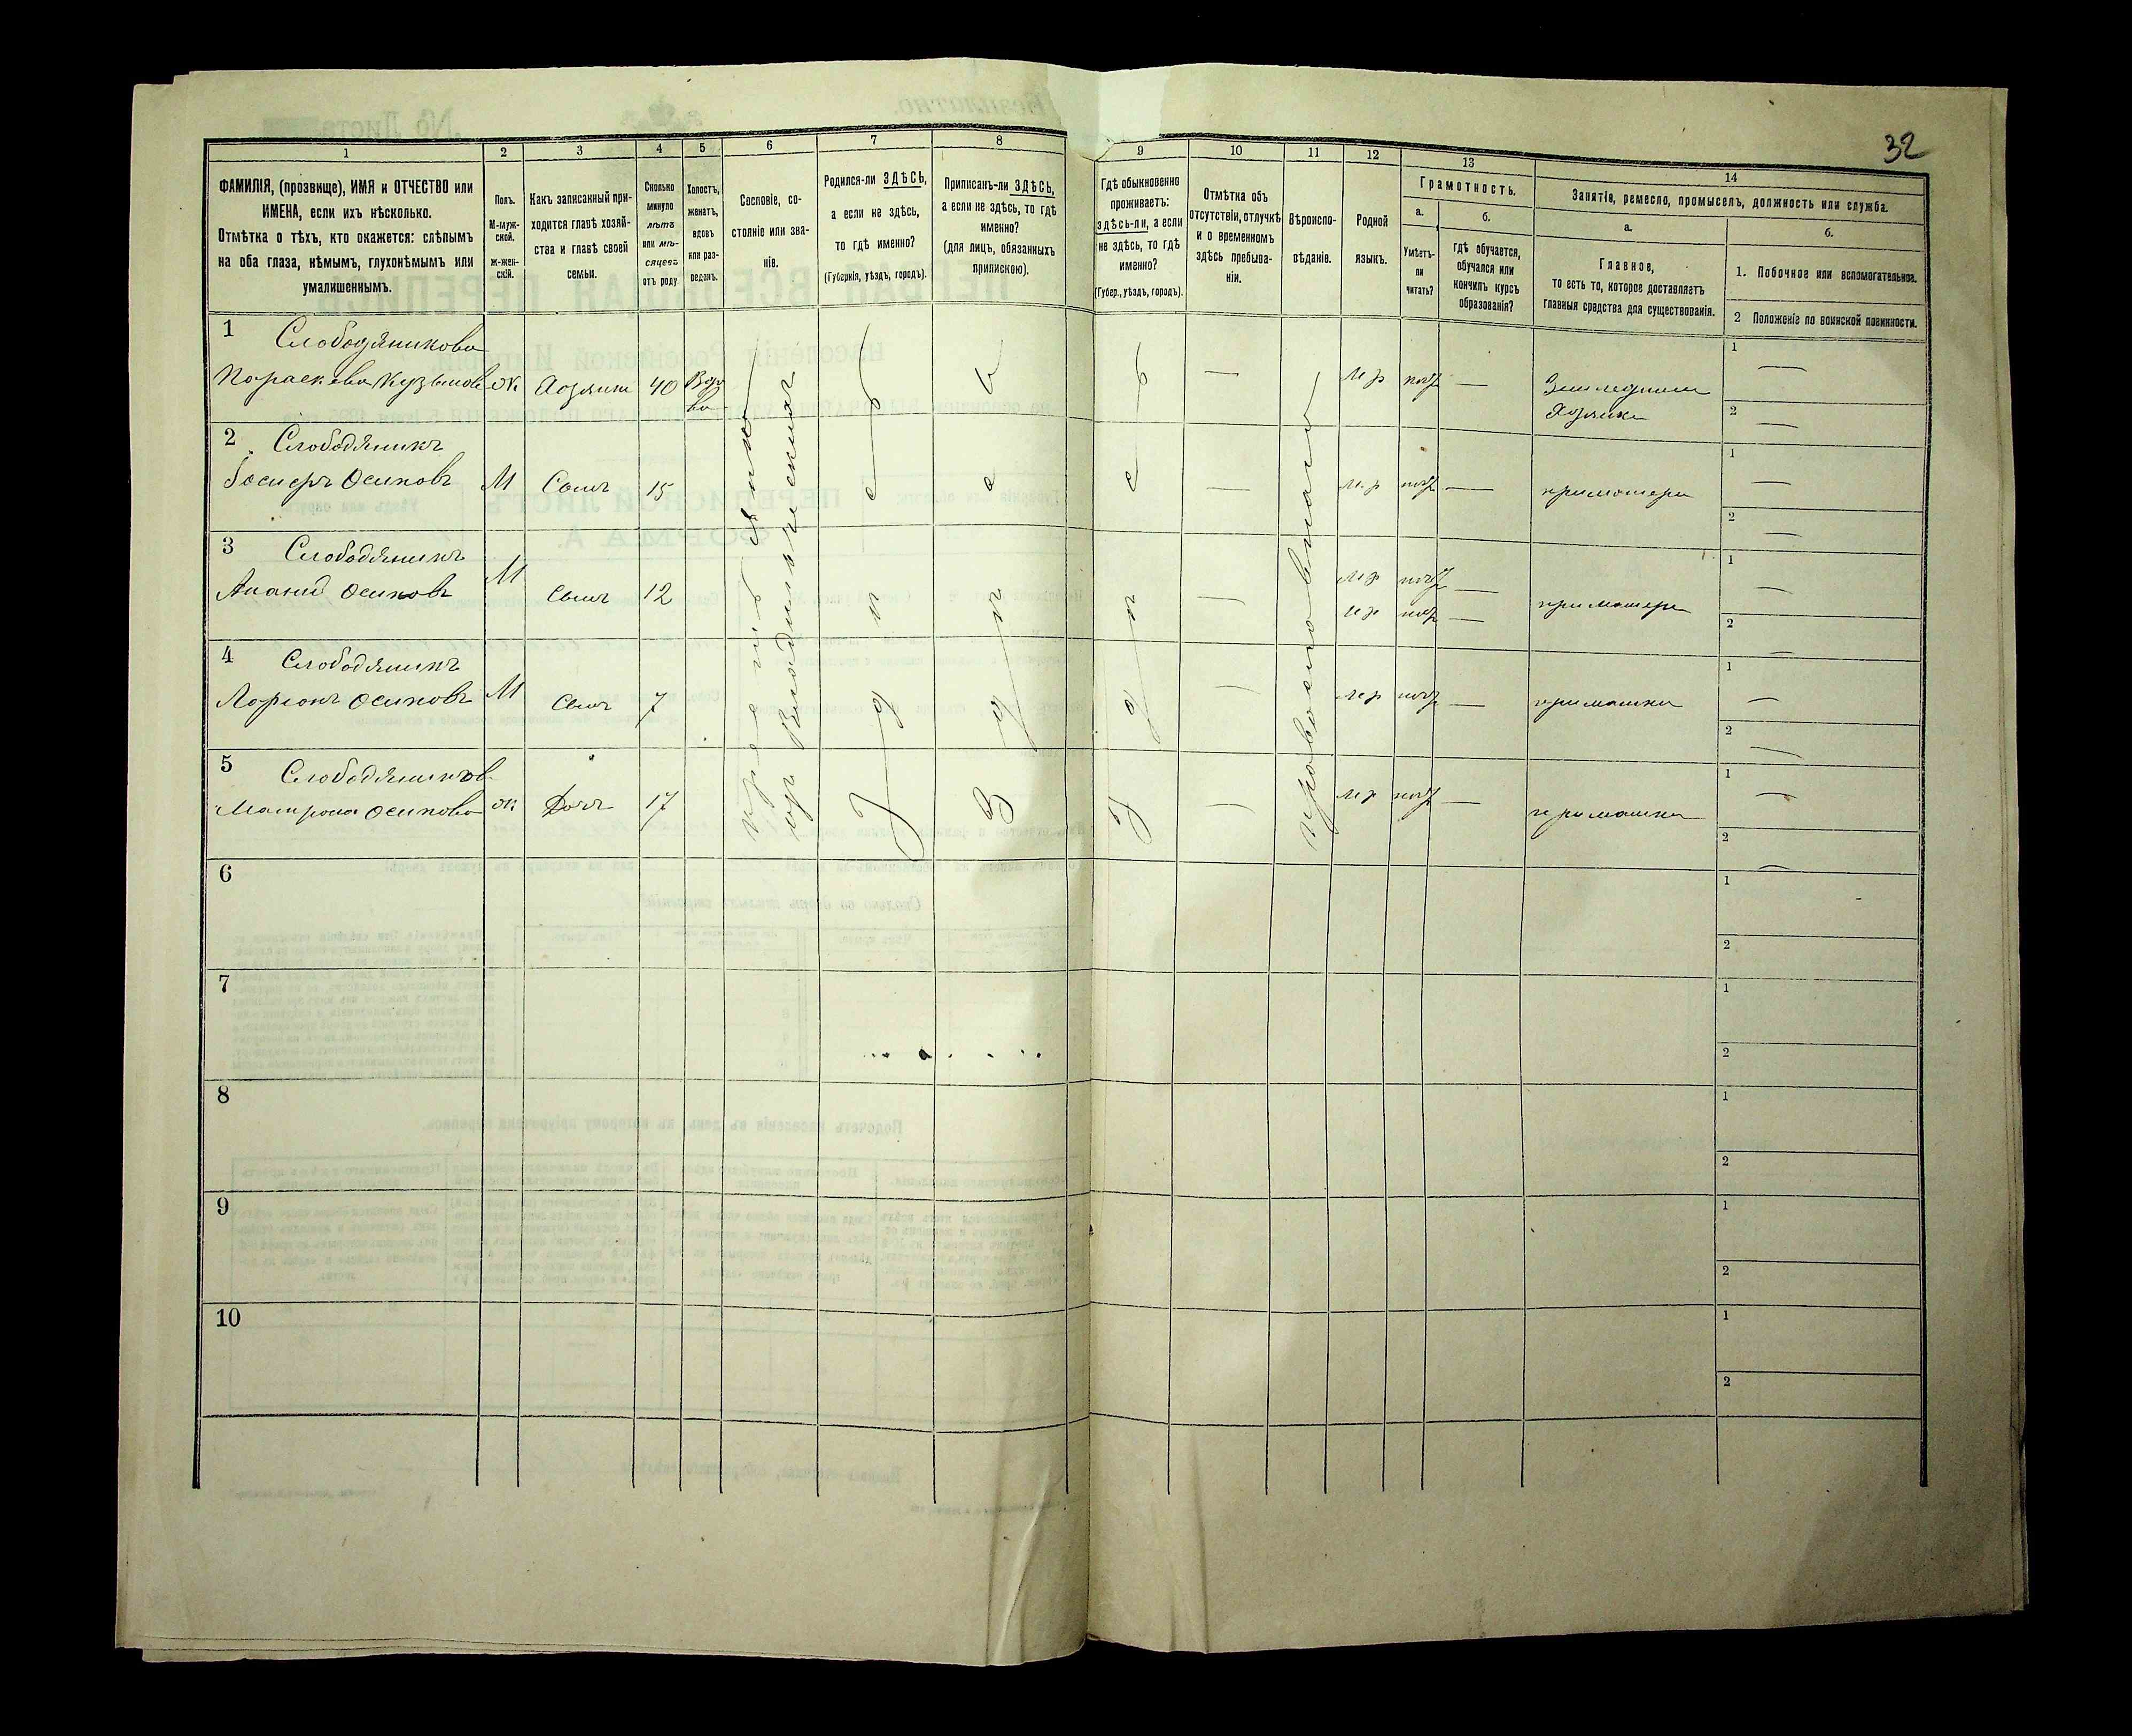 32
1 2 3 4 5 6 7 8 9 10 11 12 13 14
ФАМИЛІЯ, (прозвище), ИМЯ и ОТЧЕСТВО или
ИМЕНА, если ихъ нѣсколько.
Отмѣтка о тѣхъ, кто окажется: слѣпымъ
на оба глаза, нѣмымъ, глухонѣмымъ или
умалишеннымъ.
Полъ.
М-муж-
ской.
ж-жен-
скій.
Какъ записанный при-
ходится главѣ хозяй-
ства и главѣ своей
семьи.
Сколько
минуло
лѣтъ
или мѣ-
сяцевъ
отъ роду.
Холостъ,
женатъ,
вдовъ
или раз-
веденъ.
Сословіе, со-
стояніе или зва-
ніе.
Родился-ли ЗДѢСЬ,
а если не здѣсь,
то гдѣ именно?
(Губернія, уѣздъ, городъ).
Приписанъ-ли ЗДѢСЬ,
а если не здѣсь, то гдѣ
именно?
(для лицъ, обязанныхъ
припискою).
Гдѣ обыкновенно
проживаетъ:
здѣсь-ли, а если
не здѣсь, то гдѣ
именно?
(Губер., уѣздъ, городъ).
Отмѣтка объ
отсутствіи, отлучкѣ
и о временномъ
здѣсь пребыва-
ніи.
Вѣроиспо-
вѣданіе.
Родной
языкъ.
Грамотность.
а.
Умѣетъ-
ли
читать?
б.
гдѣ обучается,
обучался или
кончилъ курсъ
образованія?
Занятіе, ремесло, промыселъ, должность или служба.
а.
Главное,
то есть то, которое доставляетъ
главныя средства для существованія.
б.
1. Побочное или вспомогательное.
2 Положеніе по воинской повинности.
1 Слободяникова
Параскева Кузьмов ж Хозяин 40 Вдо
ва
— м р —
Хозяика
1 —
2 —
2 Слободяникъ
Іосифъ Осиповъ М Сынъ 15
— м. р —
при матери
1 —
2 —
3 Слободяникъ
Ананiй Осиповъ М Сынъ 12
— м р —
м р —
при матери
1 —
2 —
4 Слободяникъ
Ларіонъ Осиповъ М Сынъ 7
— м р —
1 —
2 —
5 Слободяников
Матрона Осипова ж Дочь 17
— м р —
1 —
2 —
здесь
здесь
здесь
православнаго
6
1
2
7
1
2
8
1
2
9
1
2
10
1
2